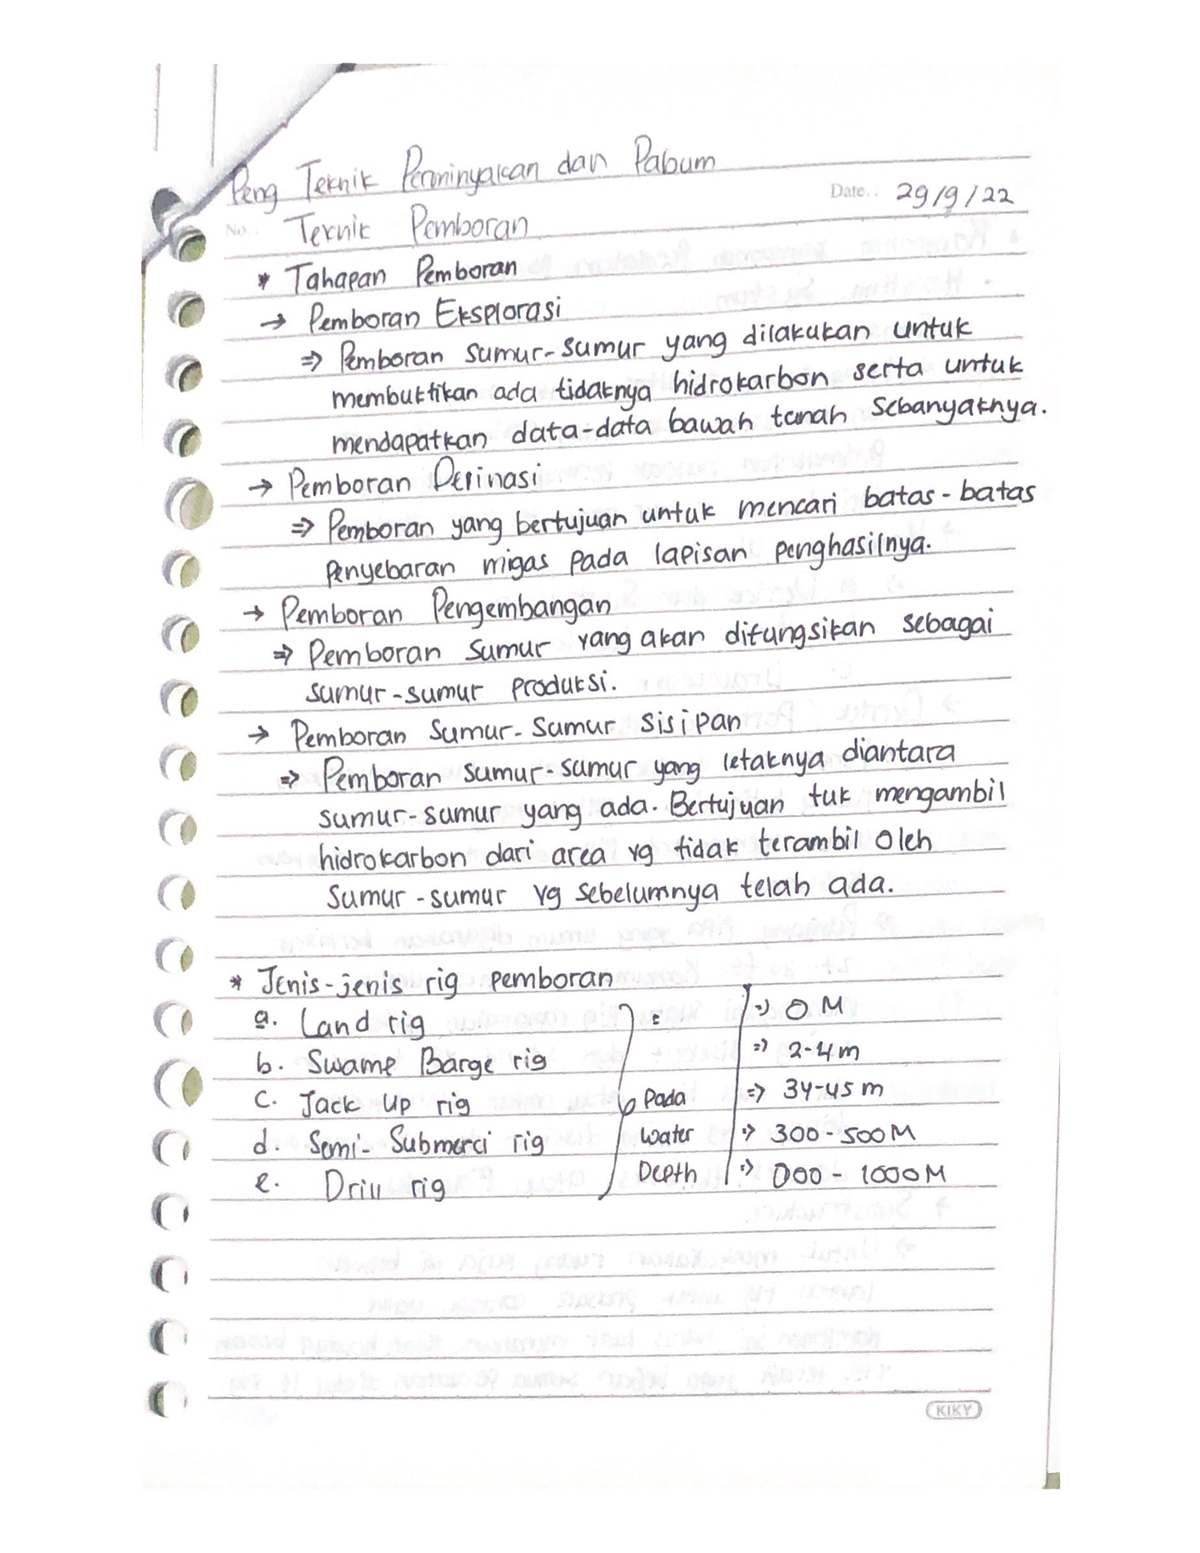 Peng Teknik Perminyakan dan Pabum
Date.. 29/9/22
No.. Teknik Pemboran
* Tahapan Pemboran
→ Pemboran Eksplorasi
⇒ Pemboran sumur-sumur yang dilakukan untuk
membuktikan ada tidaknya hidrokarbon serta untuk
mendapatkan data-data bawah tanah sebanyaknya.
→ Pemboran Delinasi
⇒ Pemboran yang bertujuan untuk mencari batas-batas
Penyebaran migas pada lapisan penghasilnya.
→ Pemboran Pengembangan
⇒ Pemboran sumur yang akan difungsikan sebagai
sumur-sumur produksi.
→ Pemboran Sumur-Sumur Sisipan
⇒ Pemboran sumur-sumur yang letaknya diantara
sumur-sumur yang ada. Bertujuan tuk mengambil
hidrokarbon dari area yg tidak terambil oleh
Sumur-sumur yg sebelumnya telah ada.
* Jenis-jenis rig pemboran
a. Land rig : ⇒ 0 M
b. Swamp Barge rig ⇒ 2-4 m
c. Jack up rig Pada ⇒ 34-45 m
d. Semi-Submerci rig Water ⇒ 300-500 M
e. Drill rig Depth ⇒ 000 - 1000 M
KIKY